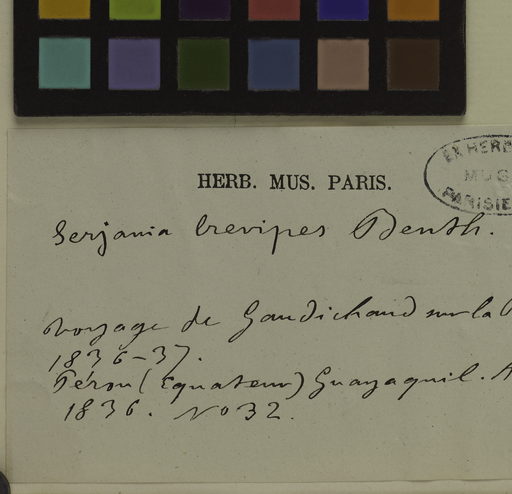 EX HERB
MUS
PARISIE
HERB. MUS. PARIS.
Serjania brevipes Benth.
Voyage de Gaudichaud sur la
1836-37.
Pérou (Equateur) Guayaquil. A
1836. No 32.